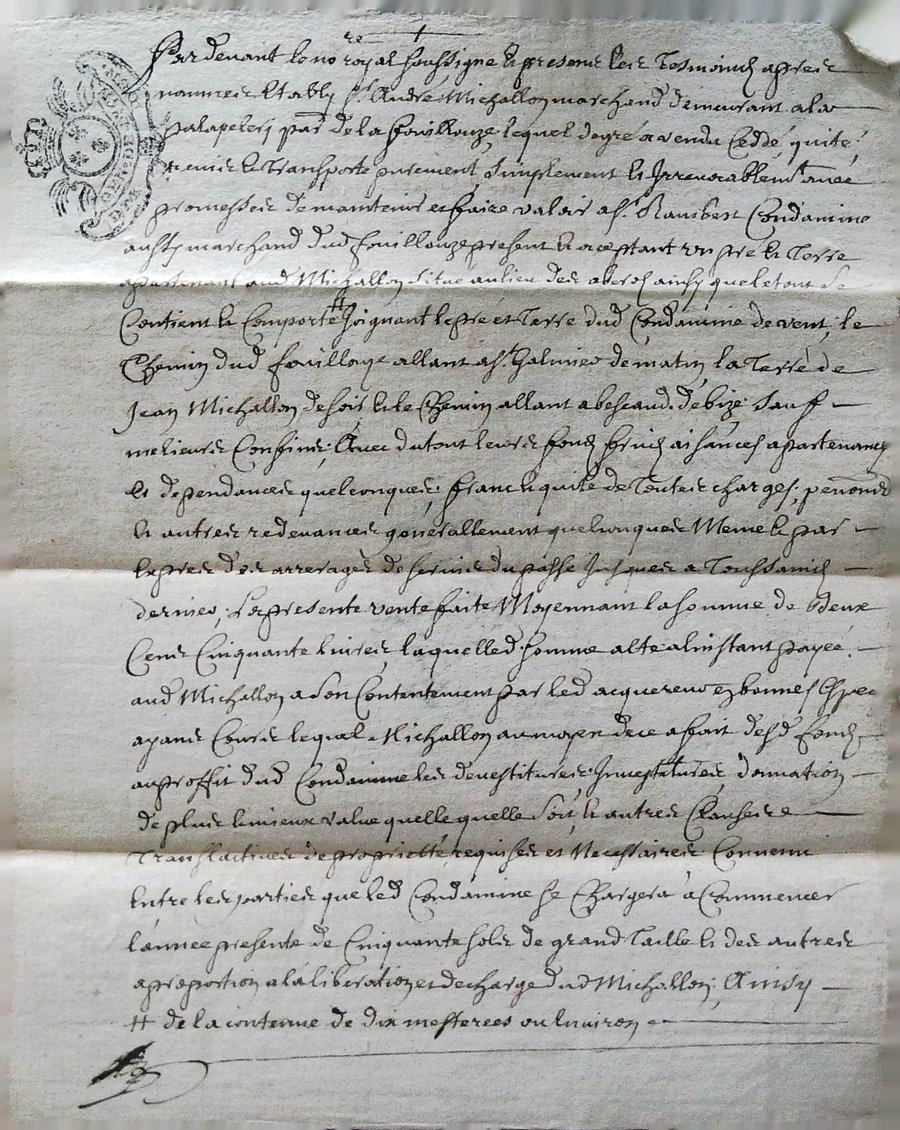 Pardevant le no.re royal soussigne et presents les tesmoins apres
nommes estably Sr. André Michallon marchand demeurant a la
palapelery par. de la fouillouze, lequel de gré a vendu ceddé, quité,
remis et transporte purement, simplement et Irrevocablemt. avec
promesses de maintenir et faire valoir a Sr. Rambert Condamine
aussy marchand dud. fouillouze present et aceptant un pré et terre
apartenant aud. Michallon situé au lieu des ainsy que le tout se
Contient et Comporte # Joignant le pré et terre dud. Condamine de vent, le
Chemin dud. fouillouze allant a St. Galmier de matin, la terre de
Jean Michallon de soir, et le Chemin allant a de bize, sauf
meilieurs Confins; Avec du tout leurs fonds fruits aisances apartenances
et dependances quelconques; franc et quite de toutes charges, pensions
et autres redevances generallement quelconques Meme et par
Expres des arrerages de servis du passé Jusques a Toussaincts
dernier; La presente vente faite Moyennant la somme de deux
Cens Cinquante livres, laquelle d. somme a esté a linstant payée
aud. Michallon a son Contentement par led. acquereur en bonnes Espec
ayans Cours lequel Michallon au moyen de ce a fait desd. fonds
au proffit dud. Condamine les devestitures Investitures, donnation
de plus et mieux value quelle quelle soit, et autres Clauses
Translactives de proprietté requises et Necessaires Convenu
Entre les parties que led. Condamine se Chargera à Commencer
lannée presente de Cinquante sols de grand Taille et des autres
a proportion a la liberation et decharge dud. Michallon; Ainsy
# de la contenue de dix mesterees ou Environ